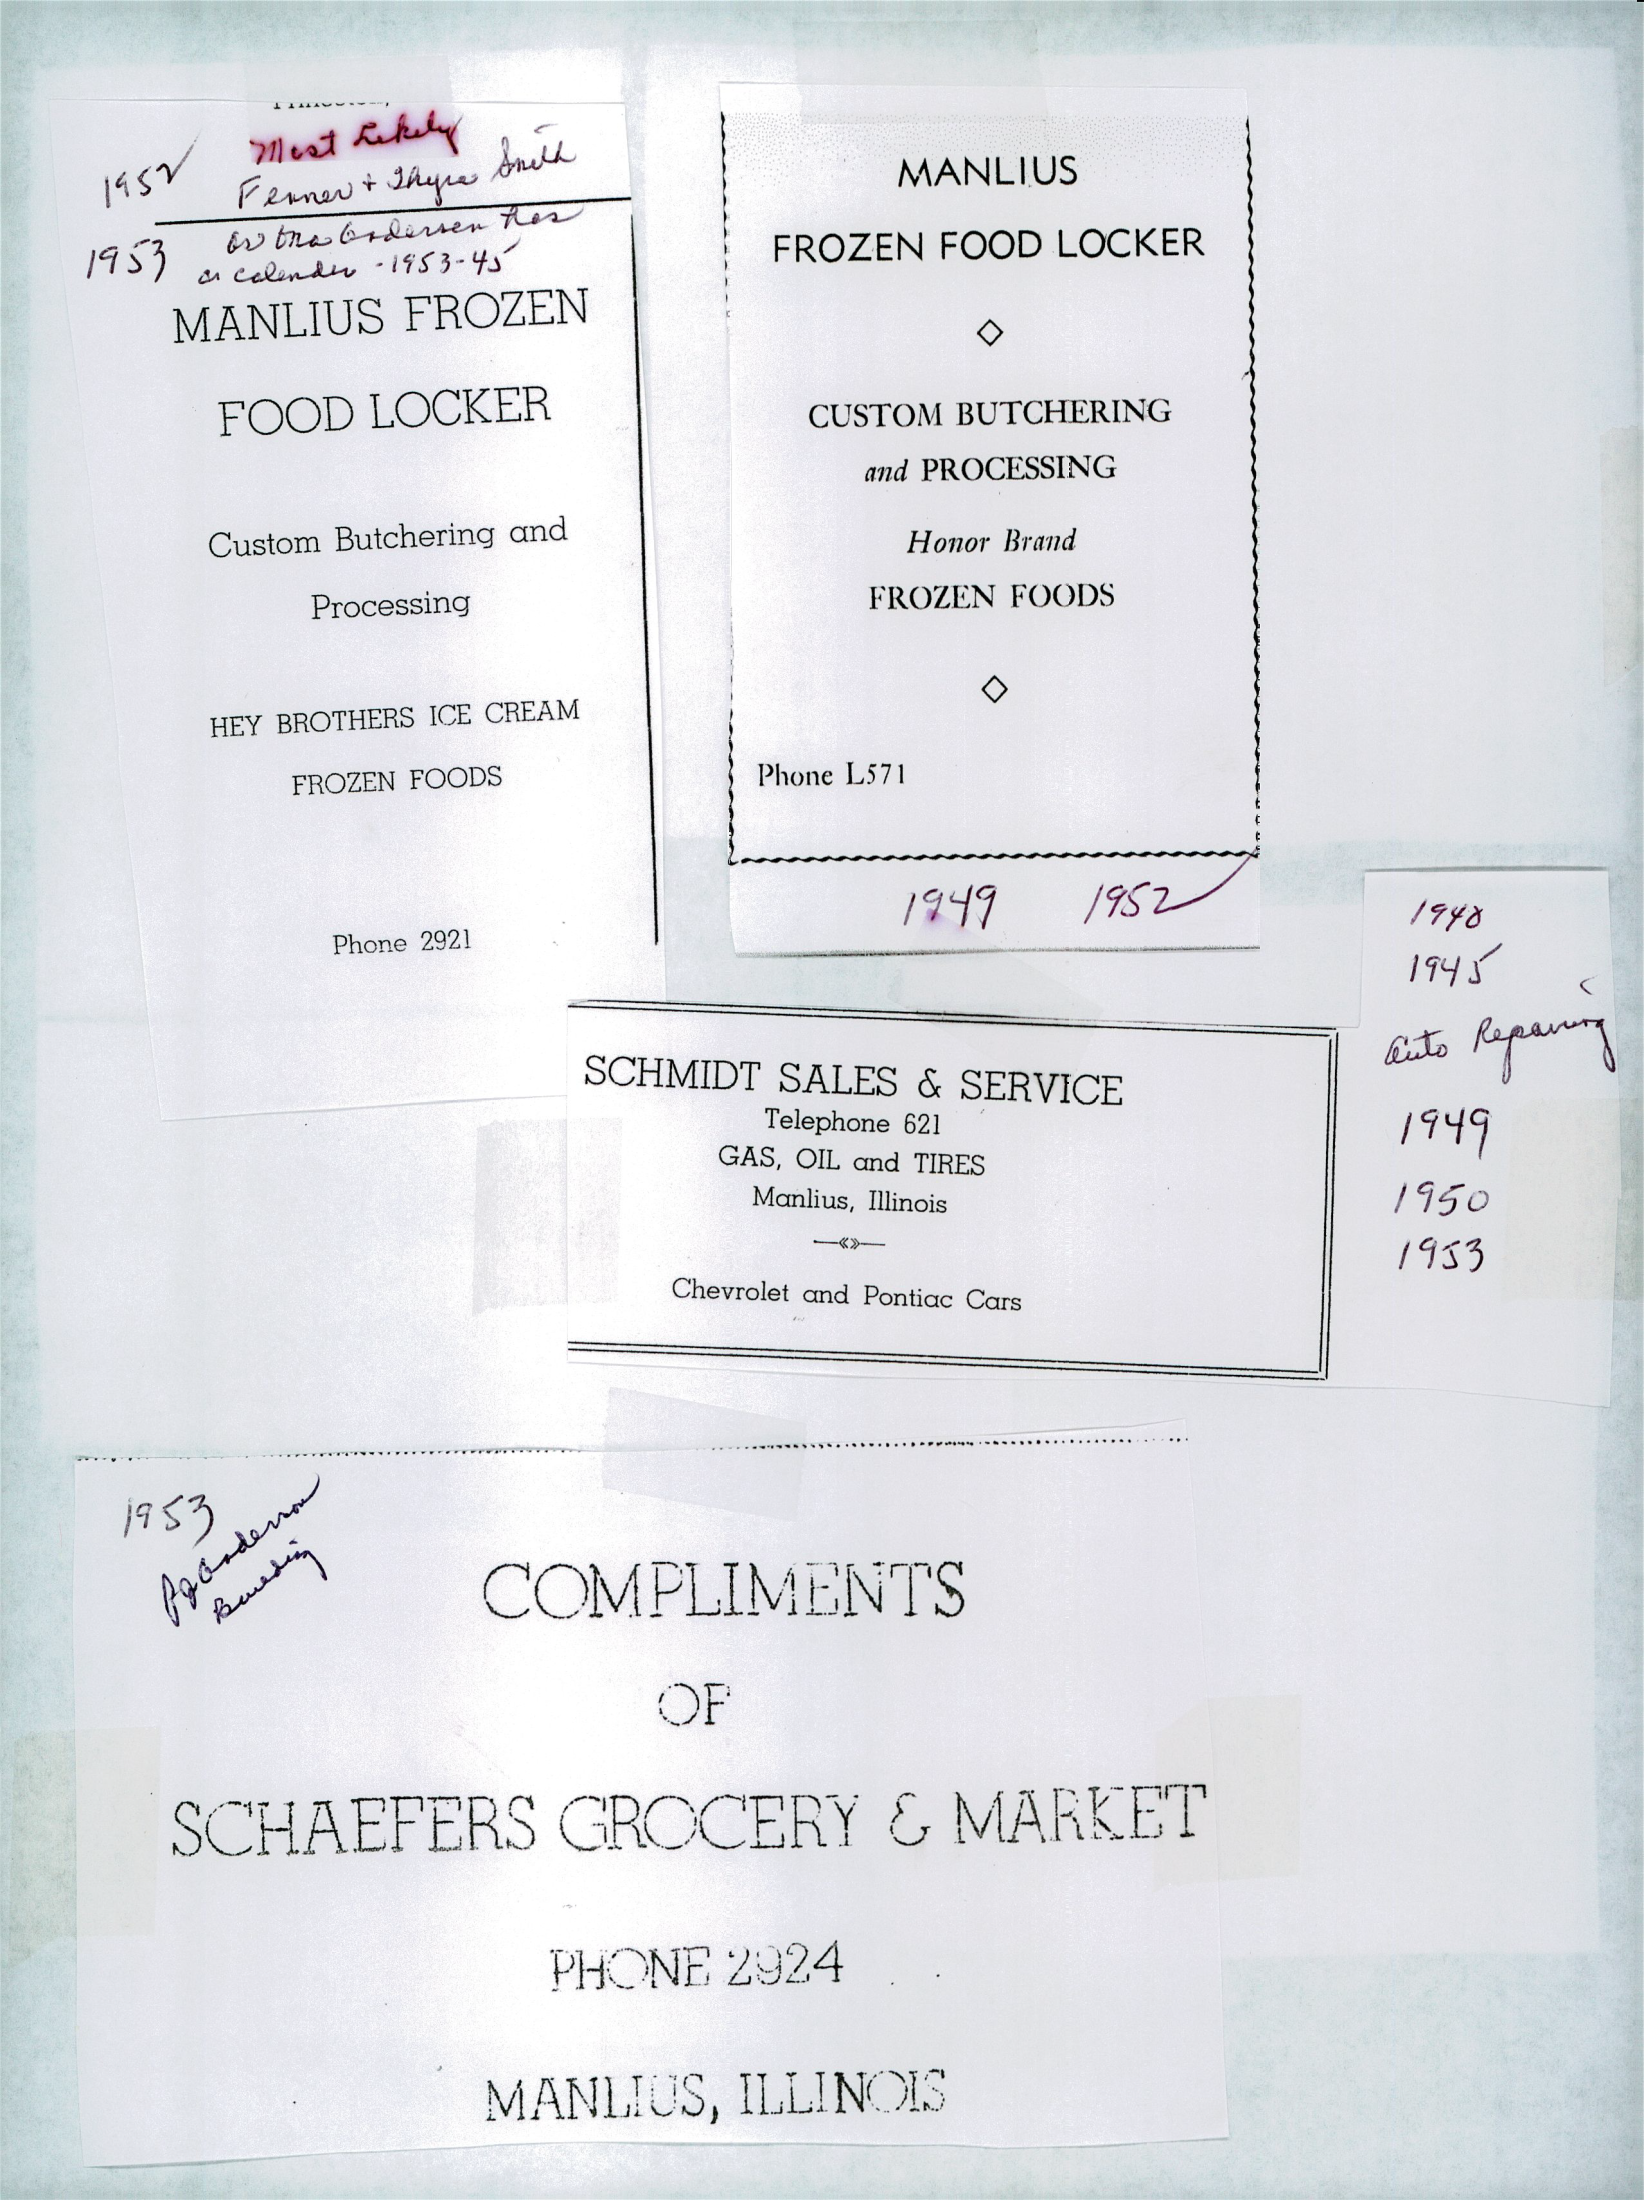 1952
Most Likely
Fenner + Thyra Smith
1953
as has
a calender - 1953-45
MANLIUS FROZEN
FOOD LOCKER
Custom Butchering and
Processing
HEY BROTHERS ICE CREAM
FROZEN FOODS
Phone 2921
MANLIUS
FROZEN FOOD LOCKER
CUSTOM BUTCHERING
and PROCESSING
Honor Brand
FROZEN FOODS
Phone L571
1949 1952
SCHMIDT SALES & SERVICE
Telephone 621
GAS, OIL and TIRES
Manlius, Illinois
Chevrolet and Pontiac Cars
1948
1945
Auto Repairing
1949
1950
1953
1953
Anderson
Building
COMPLIMENTS
OF
SCHAEFERS GROCERY & MARKET
PHONE 2924
MANLIUS, ILLINOIS